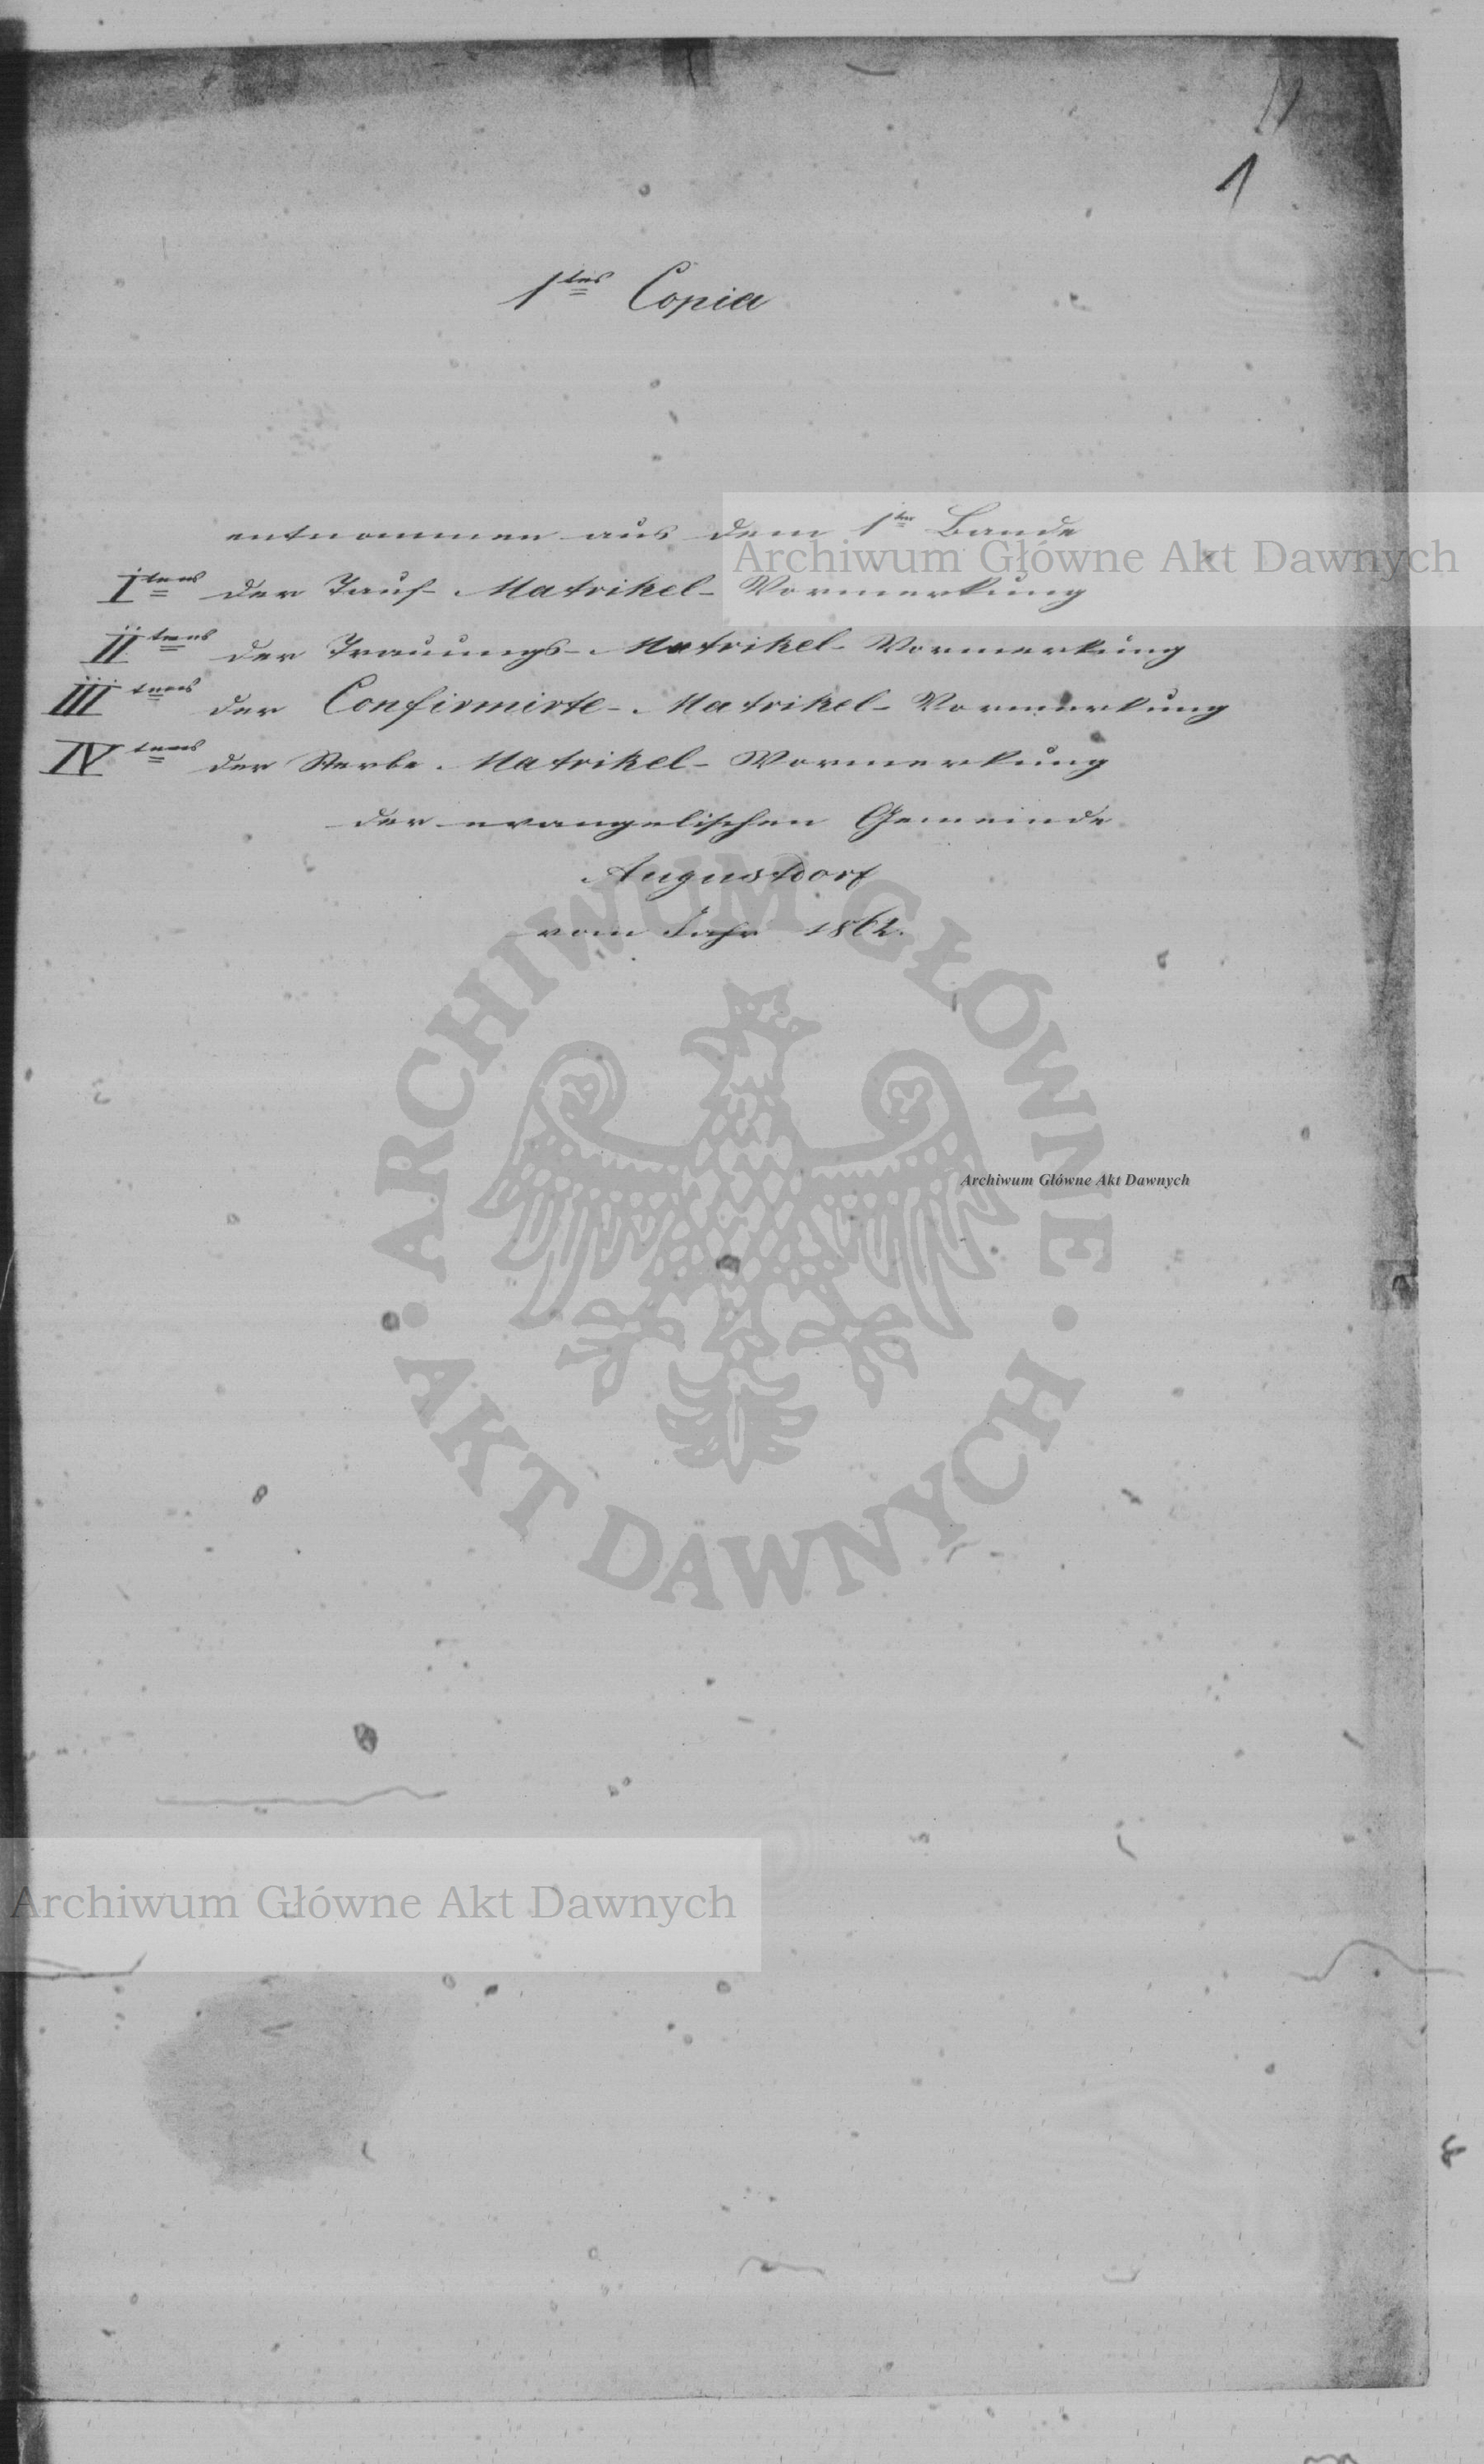 1
1tes Copia
entnommen aus dem 1ten Bande
Itens der Tauf-Matrikel-Vormerkung
IItens der Trauungs-Matrikel-Vormerkung
IIItens der Confirmirte-Matrikel-Vormerkung
IVtens der Sterbe-Matrikel-Vormerkung
der evangelischen Gemeinde
Augustdorf
vom Jahr 1862.
Archiwum Główne Akt Dawnych
ARCHIWUM GŁÓWNE · AKT DAWNYCH ·
Archiwum Główne Akt Dawnych
Archiwum Główne Akt Dawnych